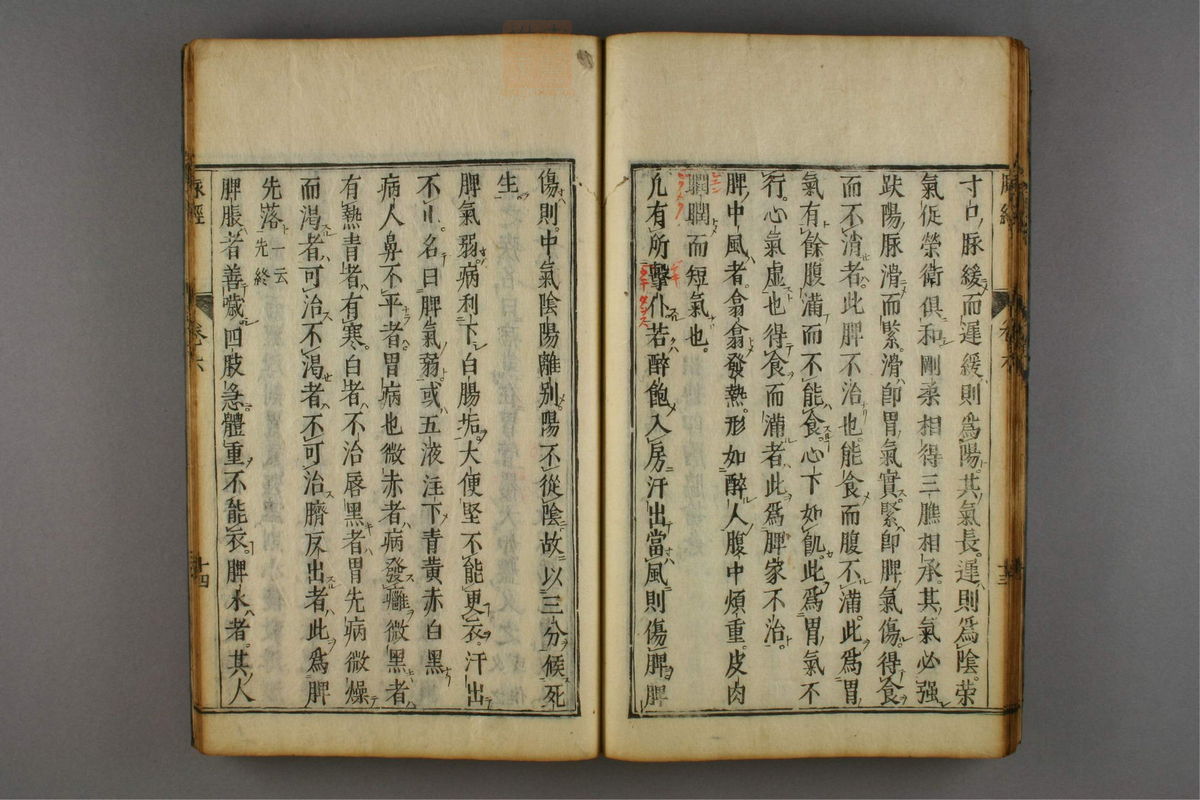 寸口脉緩而遲緩則爲陽其氣長遲則爲陰榮
氣促榮衛俱和剛柔相得三膲相承其氣必强
趺陽脉滑而緊滑卽胃氣實緊卽脾氣傷得食
而不消者此脾不治也能食而腹不滿此爲胃
氣有餘腹滿而不能食心下如飢此爲胃氣不
行心氣虛也得食而滿者此爲脾家不治
脾中風者翕翕發熱形如醉人腹中煩重皮肉
瞤瞤而短氣也
凡有所擊仆若醉飽入房汗出當風則傷脾脾
傷則中氣陰陽離別陽不從陰故以三分候死
生
脾氣弱病利下白腸垢大便堅不能更衣汗出
不止名曰脾氣弱或五液注下青黃赤白黑
病人鼻下平者胃病也微赤者病發癰微黑者
有熱青者有寒白者不治唇黑者胃先病微燥
而渴者可治不渴者不可治臍反出者此爲脾
先落一云先終
脾脹者善噦四肢急體重不能衣脾水者其人
脉經 卷六 十三
脉經 卷六 十四